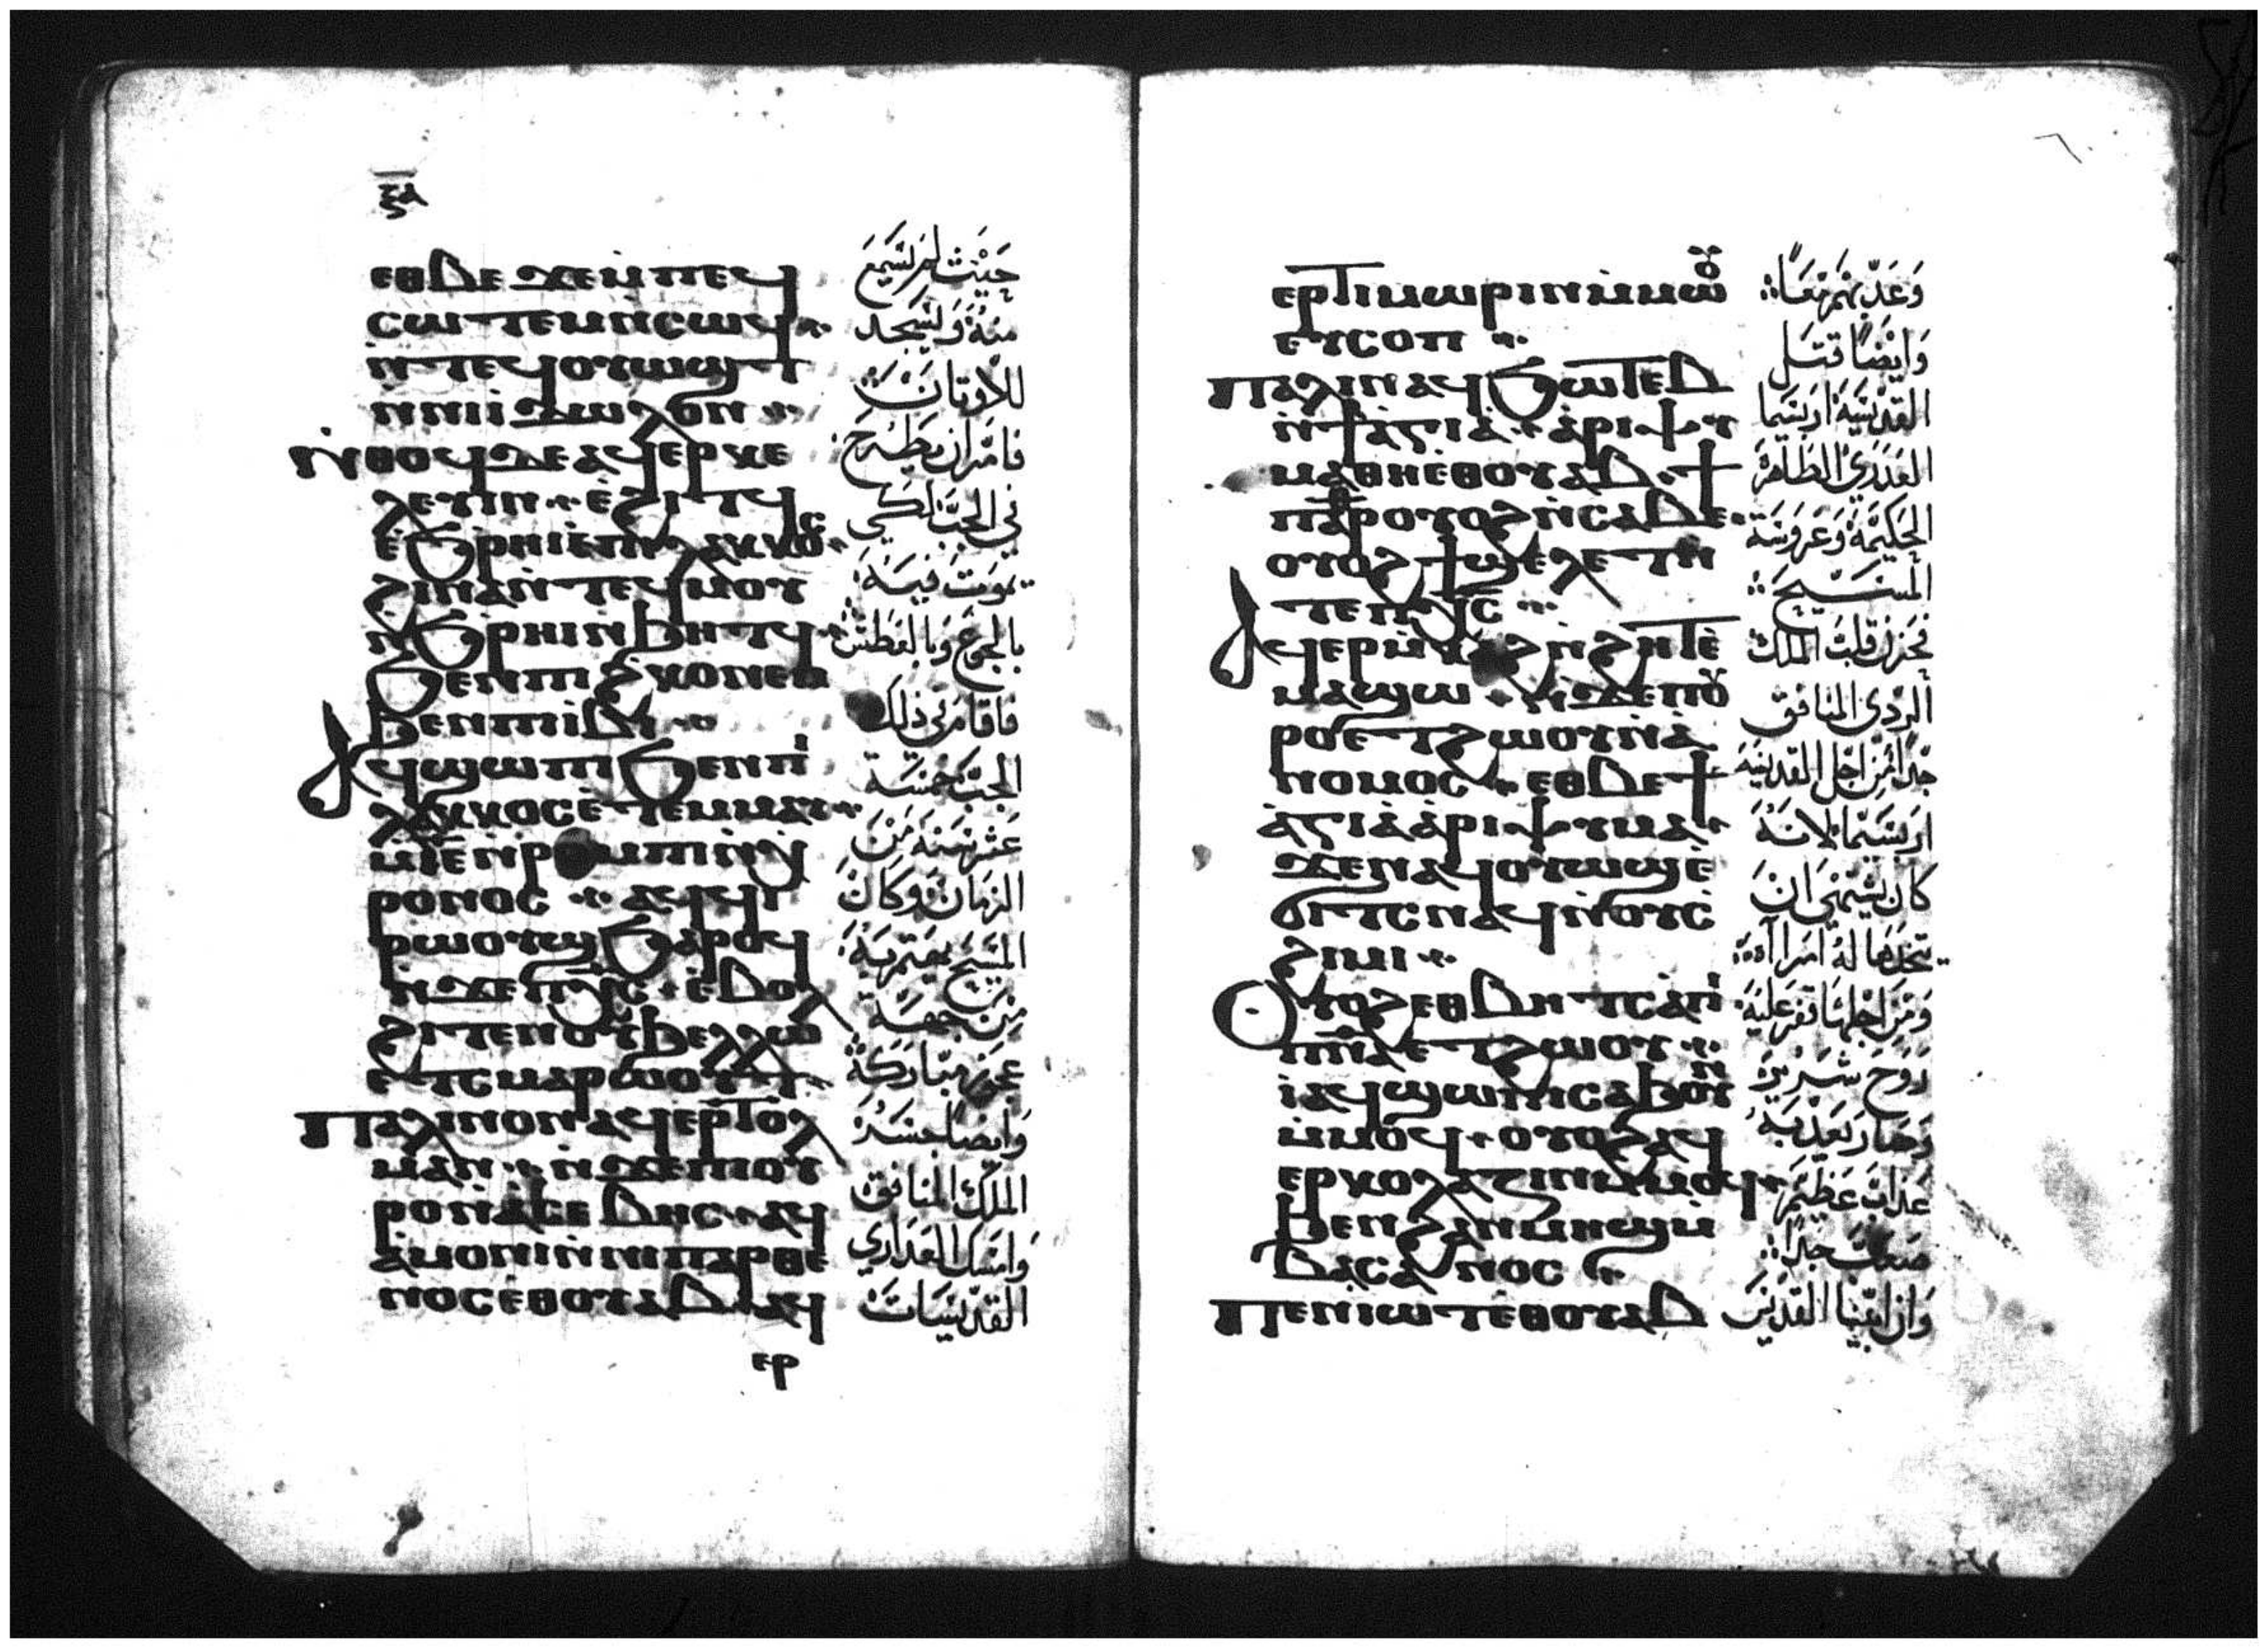 ⲝⲁ
ⲉⲑⲃⲉ ϫⲉⲙⲡⲉϥ
ⲥⲱⲧⲉⲙⲛ̀ⲥⲱϥ
ⲛ̀ⲧⲉϥⲟⲩⲱϣⲧ
ⲛ̀ⲛⲓⲓ̀ⲇⲱⲗⲟⲛ
ⲛ̀ⲑⲟϥⲇⲉⲁϥⲉⲣⲕⲉ
ⲗⲉⲩⲓⲛ ⲉ̀ϩⲓⲧϥ
ⲉ̀ϧⲣⲏⲓⲉ̀ⲡⲓⲗⲁⲕⲕⲟⲥ
ϩⲓⲛⲁⲛ̀ⲧⲉϥⲙⲟⲩ
ⲛ̀ϧⲣⲏⲓⲛ̀ϧⲏⲧϥ
ϧⲉⲛⲡⲓϩⲕⲟⲛⲉⲙ
ϧⲉⲛⲡⲓⲓ̀ⲃⲓ
ⲁϥϣⲱⲡⲓϧⲉⲛⲡⲓ
ⲗⲁⲕⲕⲟⲥⲉ̀ⲧⲉⲙⲙⲁⲩ
ⲣⲟⲛⲟⲥ ⲁϥϥⲓ
ⲣⲱⲟⲩϣϧⲁⲣⲟϥ
ⲛ̀ϫⲉⲡⲭ̅ⲥ̅ ⲉ̀ⲃⲟⲗ
ϩⲓⲧⲉⲛⲟⲩϧⲉⲗⲗⲱ
ⲉⲧⲥⲙⲁⲣⲱⲟⲩⲧ
ⲡⲁⲗⲓⲛⲟⲛⲁϥⲉⲣⲧⲟⲗ
ⲙⲁⲛ ⲛ̀ϫⲉⲡⲓⲟⲩ
ⲣⲟⲛ̀ⲁ̀ⲥⲉⲃⲏⲥ ⲁϥ
ⲁ̀ⲙⲟⲛⲓⲛ̀ⲛⲓⲡⲁⲣⲑⲉ
ⲛⲟⲥⲉ̀ⲑⲟⲩⲁⲃ ⲁϥ
ⲉⲣ
حَيْنث لم يَسْمَع
منهُ وَليسجد
للاوتان
فامَر ان يطرح
في الجب لكي
يموت فيه
بالجوع وَبالعَطش
فاقام في ذلك
الجب خمسة
عشر سنة من
الزمان وَكان
المسَيح يهتم به
من جهة
عجوز مباركة
وايضا جسَر
الملك المنافق
وَامسك العَداري
القديسَات
ⲉⲣⲧⲓⲙⲱⲣⲓⲛⲙ̀ⲙⲱⲟⲩ
ⲉⲩⲥⲟⲡ
ⲡⲁⲗⲓⲛⲁϥϧⲱⲧⲉⲃ
ⲛ̀ϯⲁ̀ⲅⲓⲁ̀ ⲁ̀ⲣⲓⲯⲩ
ⲙⲁⲑⲏⲉ̀ⲑⲟⲩⲁⲃ ϯ
ⲡⲁⲣⲟⲩⲟϩⲛ̀ⲥⲁⲃⲉ
ⲟⲩⲟϩϯϣⲉⲗⲉⲧⲛ̀
ⲧⲉⲡⲭ̅ⲥ̅
ⲁϥⲉⲣⲙ̀ⲕⲁϩⲛ̀ϩⲏⲧⲉ̀
ⲙⲁϣⲱ ⲛ̀ϫⲉⲡⲟⲩ
ⲣⲟⲉⲧϩⲱⲟⲩⲛ̀ⲁ̀
ⲛⲟⲙⲟⲥ ⲉⲑⲃⲉϯ
ⲁ̀ⲅⲓⲁ̀ⲁ̀ⲣⲓⲯⲩⲙⲁ
ϫⲉⲛⲁϥⲟⲩⲱϣⲉ̀
ϭⲓⲧⲥⲛⲁϥⲛ̀ⲟⲩⲥ̀
ϩⲓⲙⲓ
ⲟⲩⲟϩⲉⲑⲃⲏⲧⲥⲁ̀ⲡⲓ
ⲡⲛ̅ⲁ̅ⲉⲧϩⲱⲟⲩ
ⲓ̀ ⲁϥϣⲱⲡⲓⲥⲁϧⲟⲩⲛ
ⲙ̀ⲙⲟϥ ⲟⲩⲟϩⲁϥ
ⲉⲣⲕⲟⲗⲁⲍⲓⲛⲙ̀ⲙⲟϥ
ϧⲉⲛϩⲁⲛⲙⲏϣⲙ̀
ⲃⲁⲥⲁⲛⲟⲥ
ⲡⲉⲛⲓⲱⲧⲉ̀ⲑⲟⲩⲁⲃ
وَعَدبهم مَعًا
وَايْضًا قتل
القديسَة اربسيما
العَدري الطاهرة
الحكيمة وَعَروسَة
المسَيح
فحزن قلب الملك
الردي المنافق
جدا من اجل القديسَة
اربسيما لانه
كان يشتهي ان
يتخدها له امراه
وَمن اجلها قفز عليه
روح شريرة
وَصار يعدبه
عَداب عَظيم
صعب جدا
وَان ابينا القديس